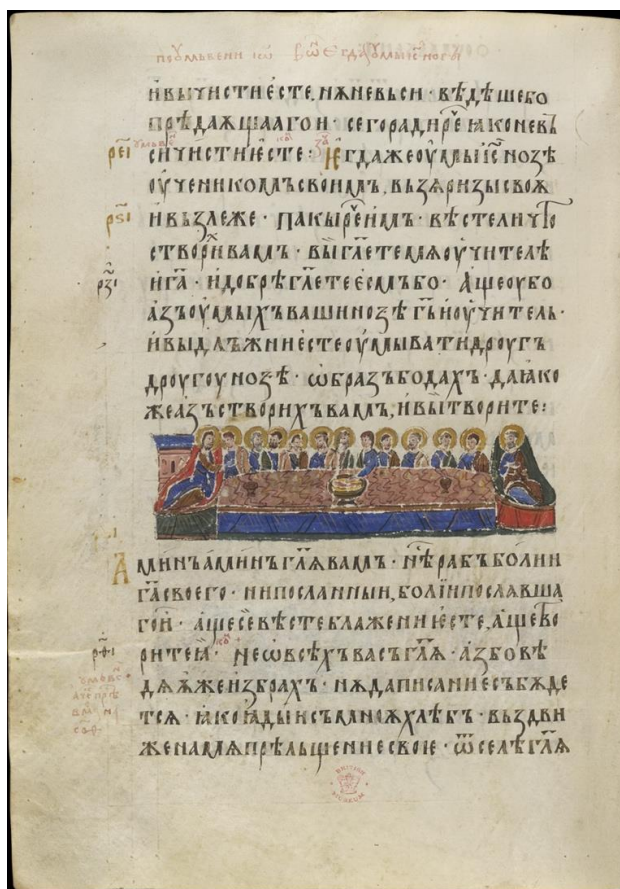 и вы чисти есте, нѫ не вьси · вѣдѣше бо
прѣдаѧщааго и · сего ради рече ꙗко не въ
си чисти есте : Егда же оумы іс҃ нозѣ
оученикомъ своимъ, възѧ ризы своѧ
и възлеже · пакы рече имъ · вѣсте ли что
створих вамъ · вы гл҃ете мѧ оучителѣ
и га҃ · и добрѣ гл҃ете есмъ бо · аще оубо
азъ оумыхъ ваши нозѣ гь҃ и оучитель ·
и вы длъжни есте оумывати дроугъ
дроугоу нозѣ · ѡбразъ бо дахъ · да ꙗко
же азъ створихъ вамъ, и вы творите :
Аминъ аминъ гл҃ѧ вамъ · нѣ рабъ болии
га҃ своего · ни посланныи, болїи пославша
го и · аще се вѣсте блажени есте, аще тво
рите ꙗ · не ѡ всѣхъ васъ гл҃ѧ · аз бо вѣ
дѧ ѧже избрах · нѫ да писание събѫде
тсѧ · ꙗко ꙗдыи съ мноѫ хлѣбъ · въздви
же на мѧ прѣльщение свое · ѿселѣ гл҃ѧ
BRITISH MUSEUM